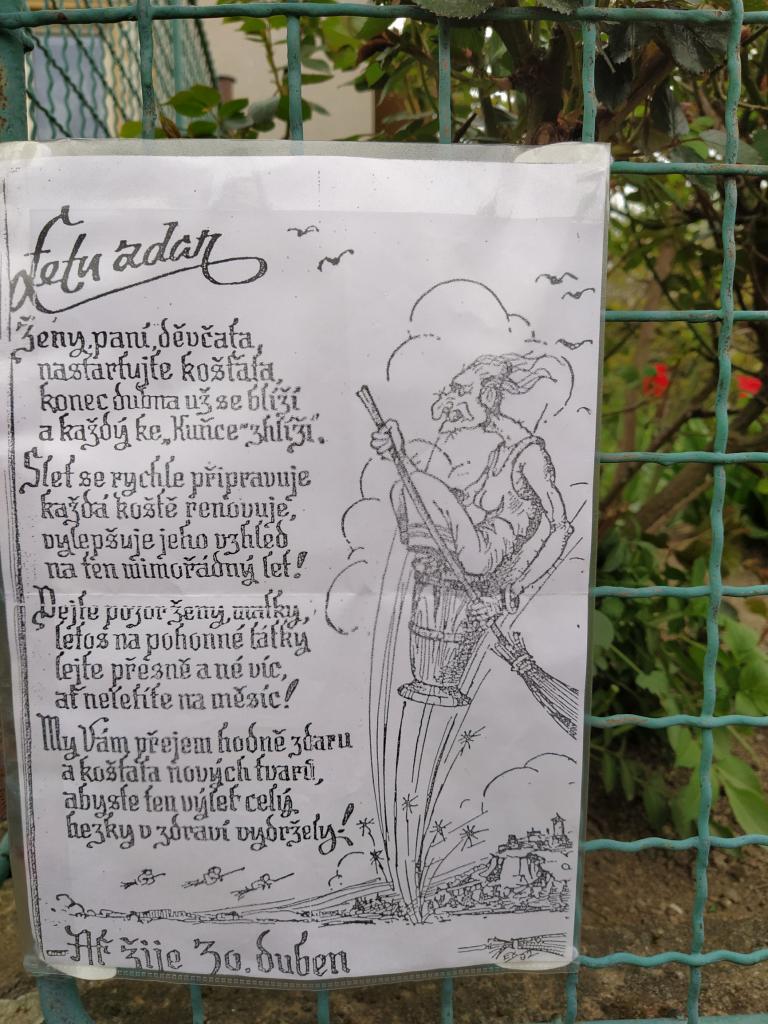 Letu zdar
Ženy, paní, děvčata,
nastartujte košťata,
konec dubna už se blíží
a každý ke „Kuňce" zhlíží".
Slet se rychle připravuje
každá koště renovuje,
vylepšuje jeho vzhled
na ten mimořádný let!
Dejte pozor ženy, matky,
letos na pohonné látky
lejte přesně a né víc,
ať neletíte na měsíc!
My Vám přejem hodně zdaru
a košťata nových tvarů,
abyste ten výlet celý
hezky v zdraví vydržely!
Ať žije 30. duben